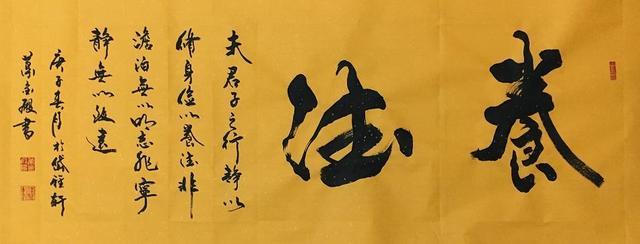 養德
夫君子之行静以
修身儉以養德非
澹泊無以明志非寧
静無以致遠
庚子春月於軒
書